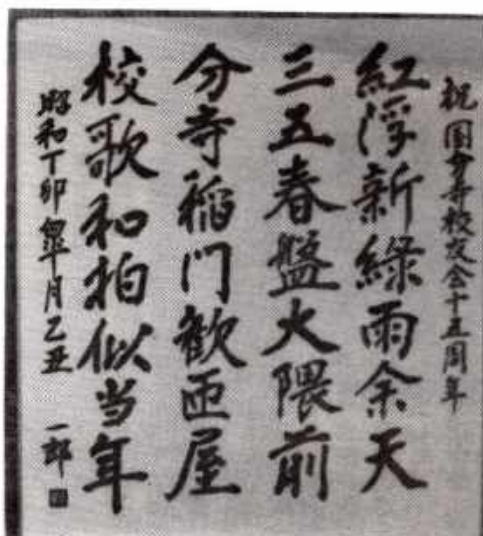 祝国分寺校友会十五周年
紅浮新緑雨余天
三五春盤大隈前
分寺稲門歓匝屋
校歌和拍似当年
昭和丁卯 月乙丑 一郎